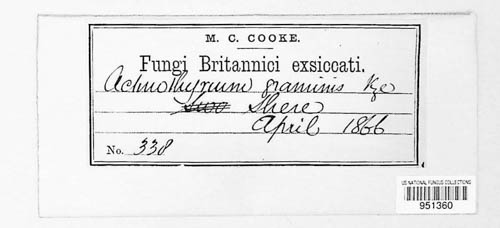 M. C. COOKE.
Fungi Britannici exsiccati.
Actinothyrium graminis Kze
Shere
April 1866
No. 338
US NATIONAL FUNGUS COLLECTIONS
951360